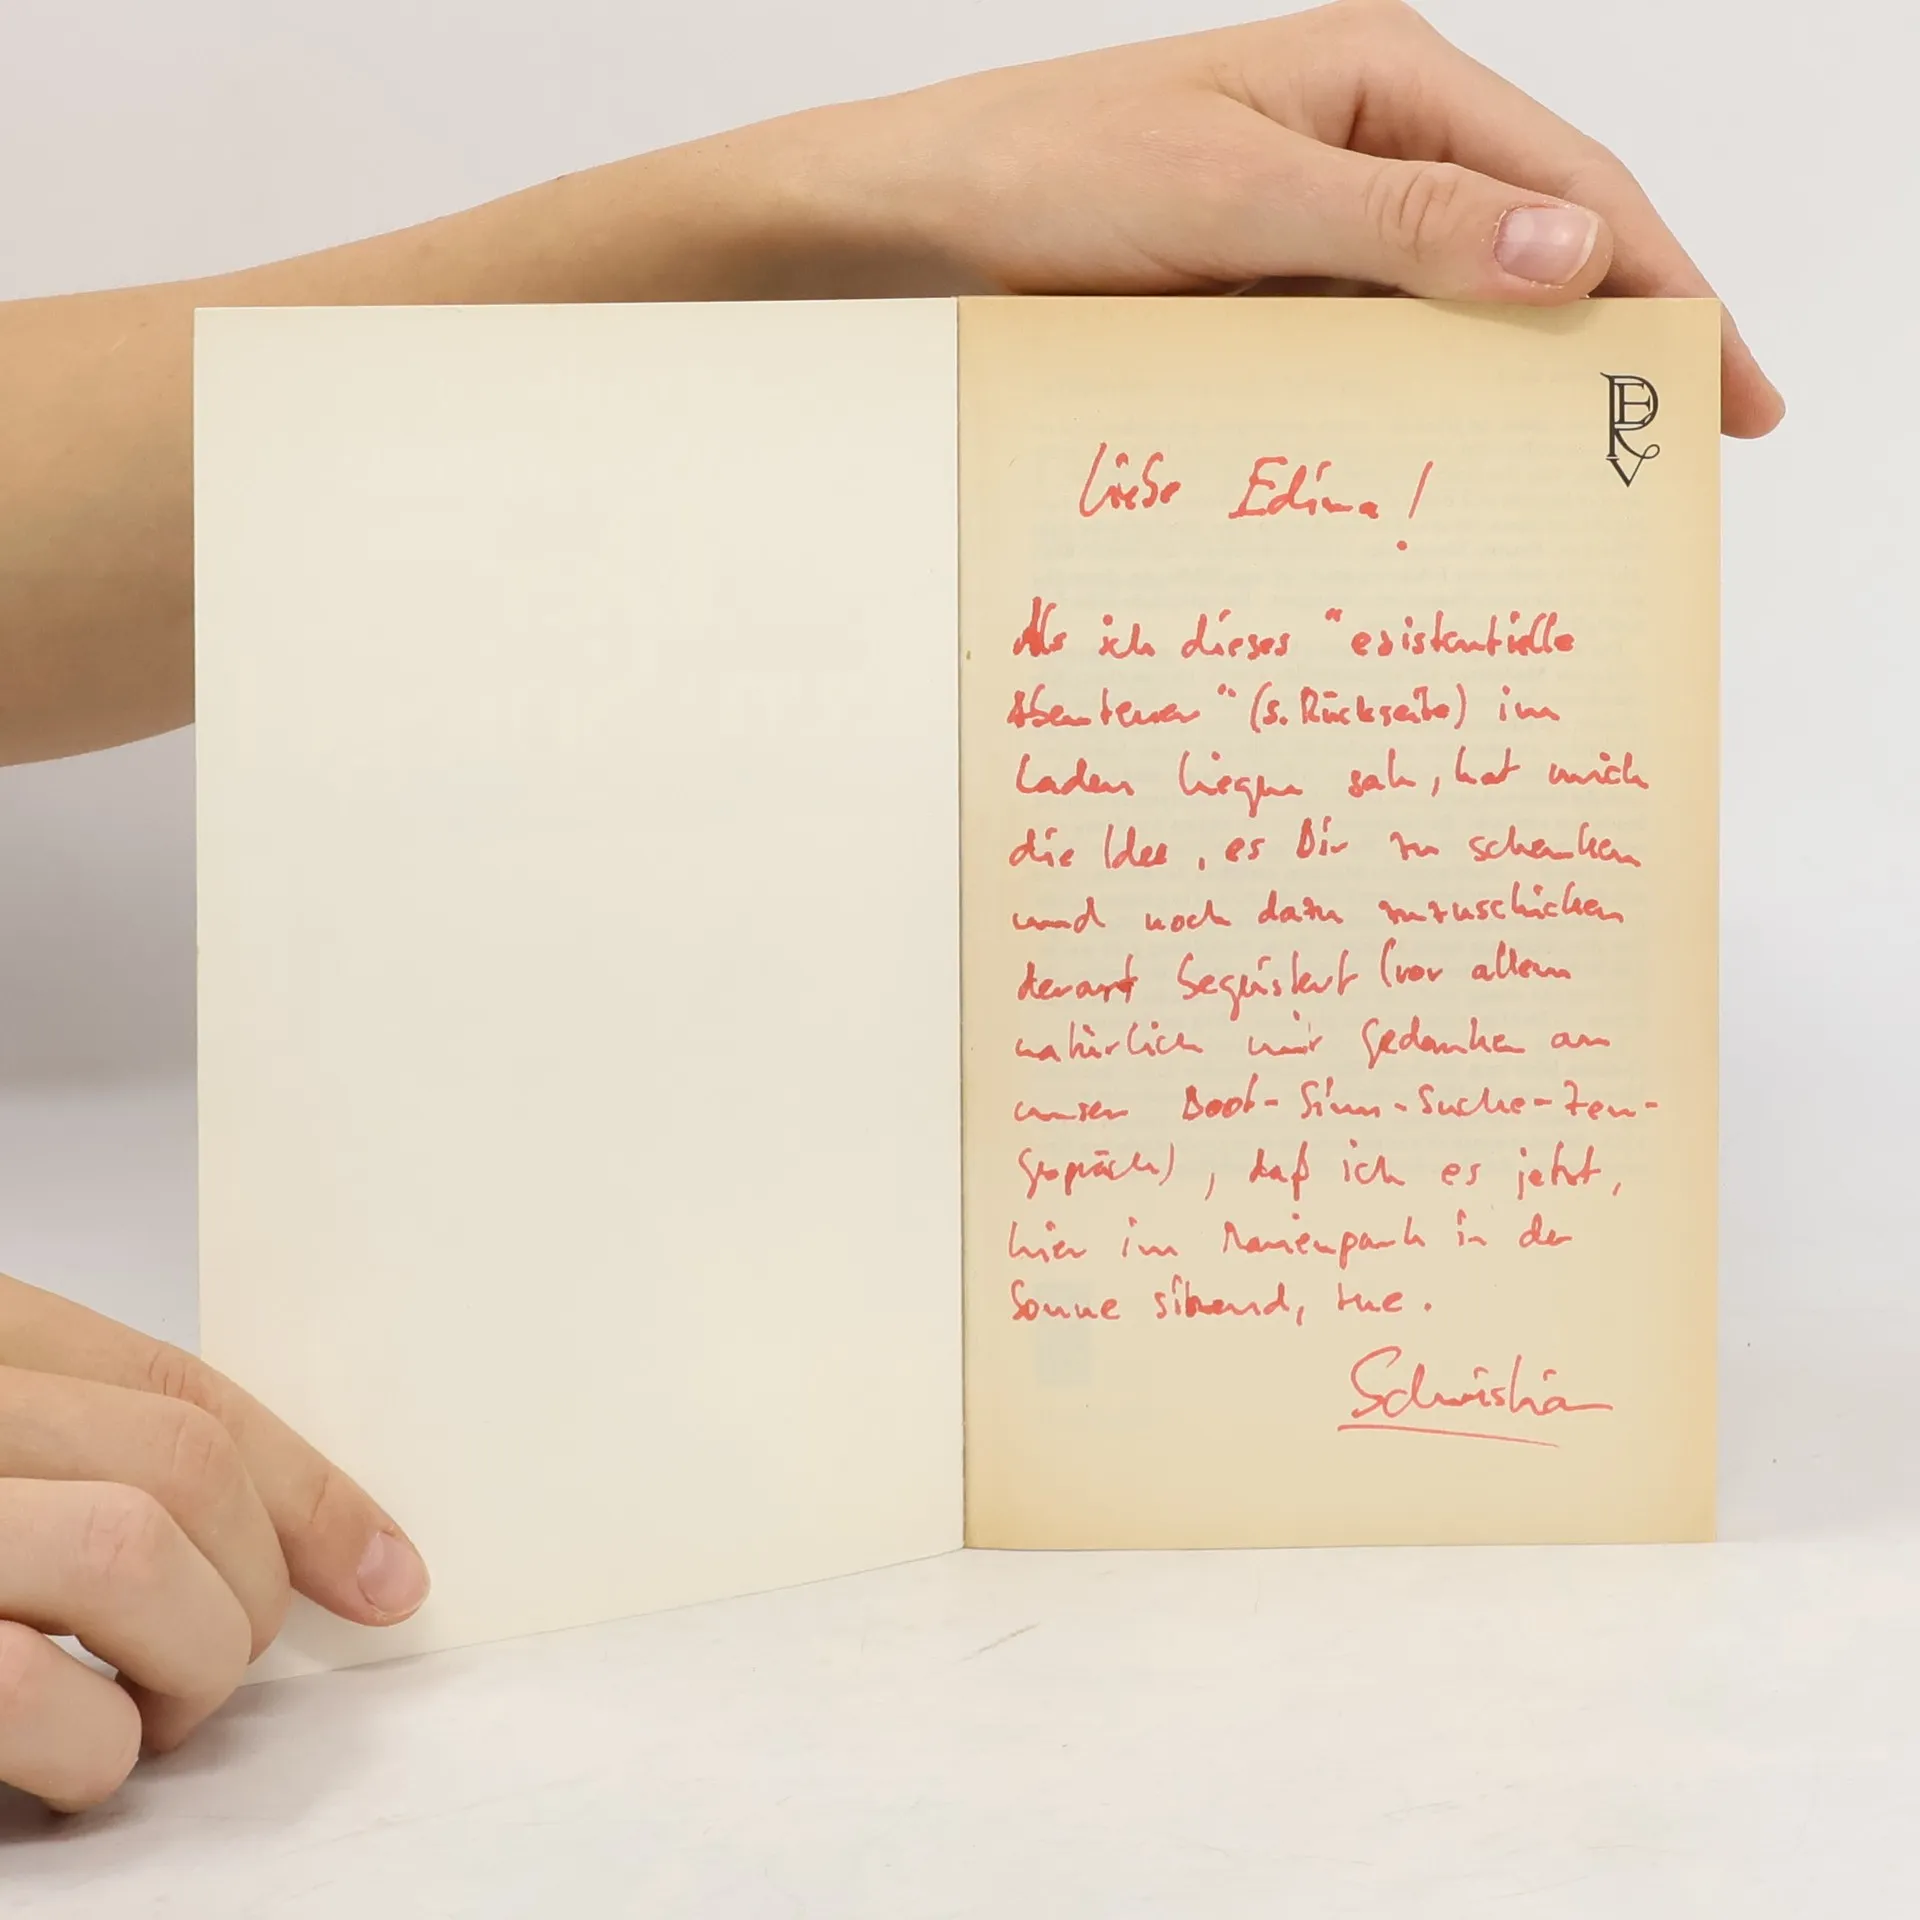 PERV
Liebe Edina!
Als ich dieses "existentielle
Abenteuer" (s. Rückseite) im
Laden liegen sah, hat mich
die Idee, es Dir zu schenken
und noch dazu zuzuschicken
derart begeistert (vor allem
natürlich mir Gedanken an
unser Boot-Sinn-Suche-Zen-
gespräch), daß ich es jetzt,
hier im Marienpark in der
Sonne sitzend, tue.